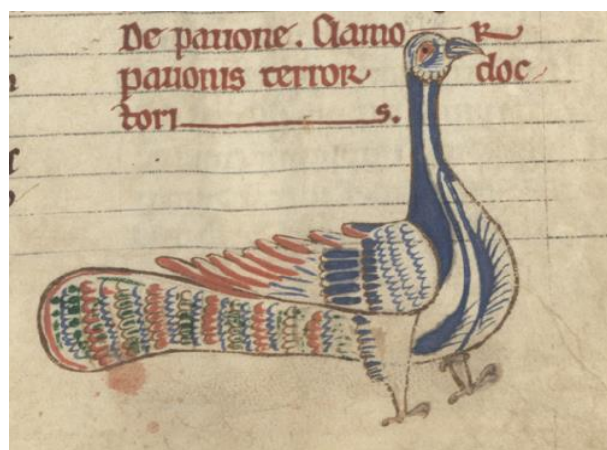 De pauone. Clamo R
pauonis terror doc
tori s.